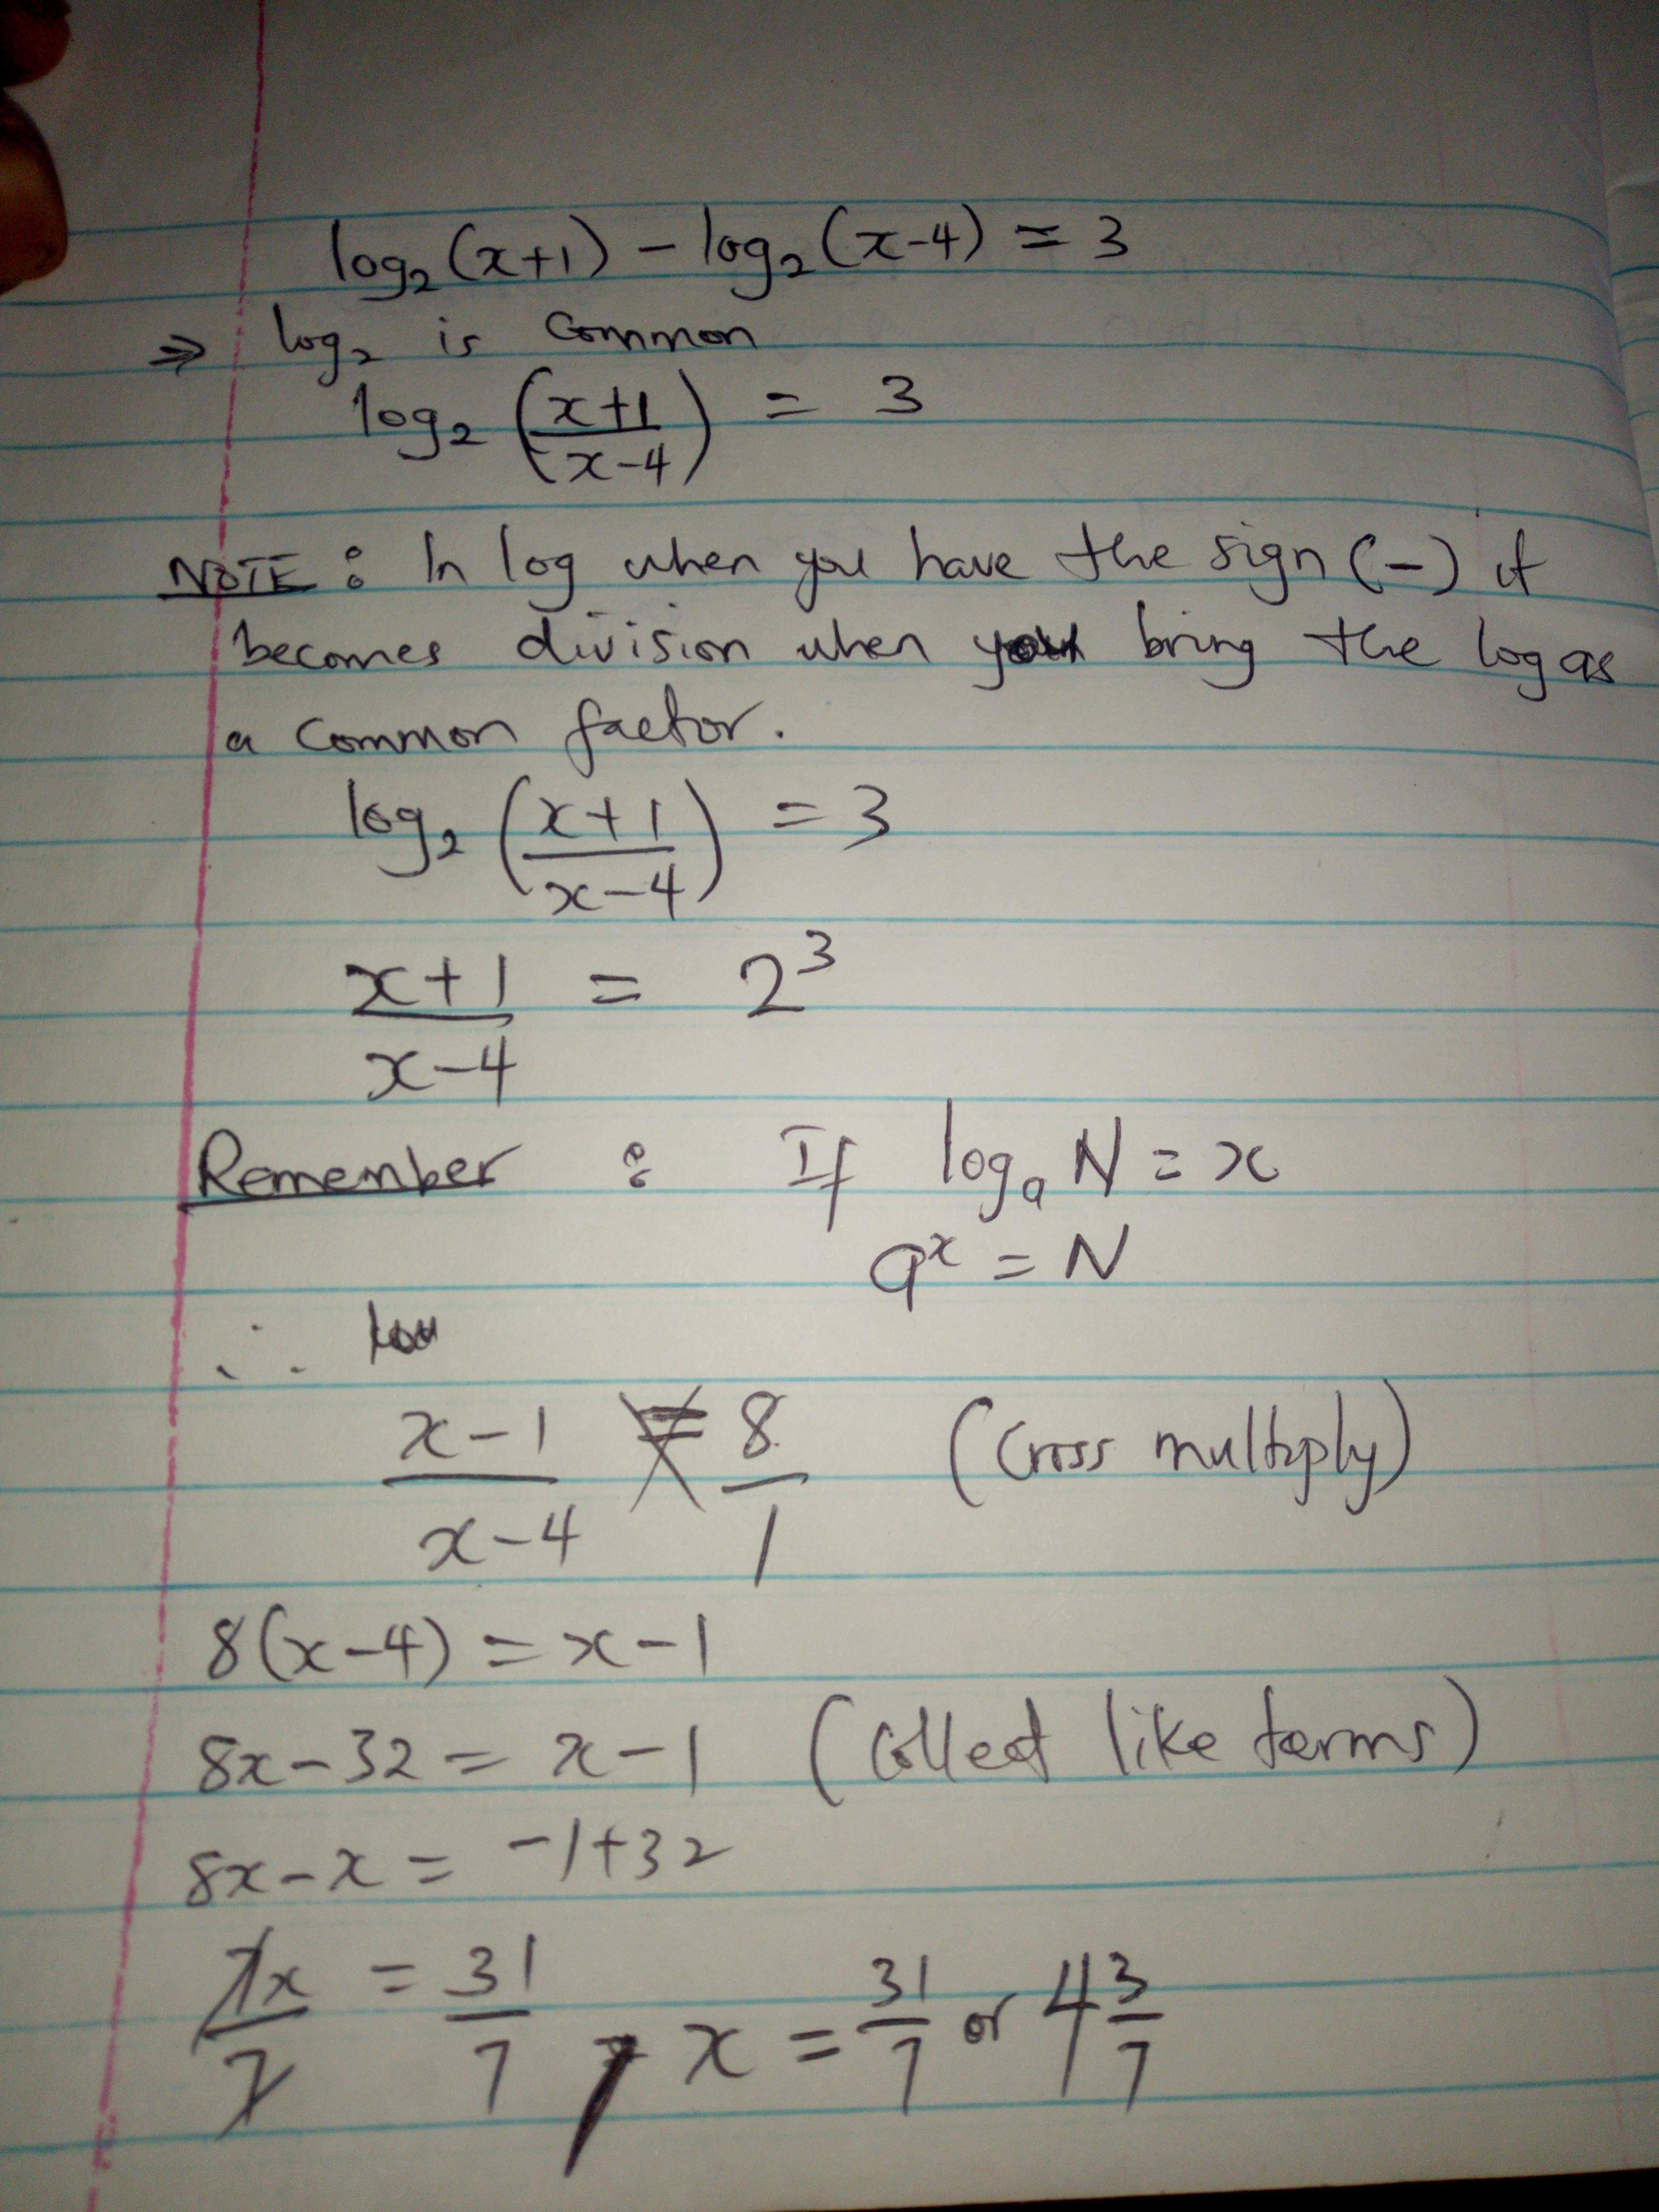 log₂(x+1) − log₂(x−4) = 3
⇒ log₂ is common
log₂ ((x+1)/(x−4)) = 3
NOTE: In log when you have the sign (−) it
becomes division when you bring the log as
a common factor.
log₂ ((x+1)/(x−4)) = 3
(x+1)/(x−4) = 2³
Remember : If logₐ N = x
aˣ = N
∴
(x−1)/(x−4) = 8/1 (cross multiply)
8(x−4) = x−1
8x−32 = x−1 (collect like terms)
8x−x = −1+32
7x/7 = 31/7, x = 31/7 or 4 3/7